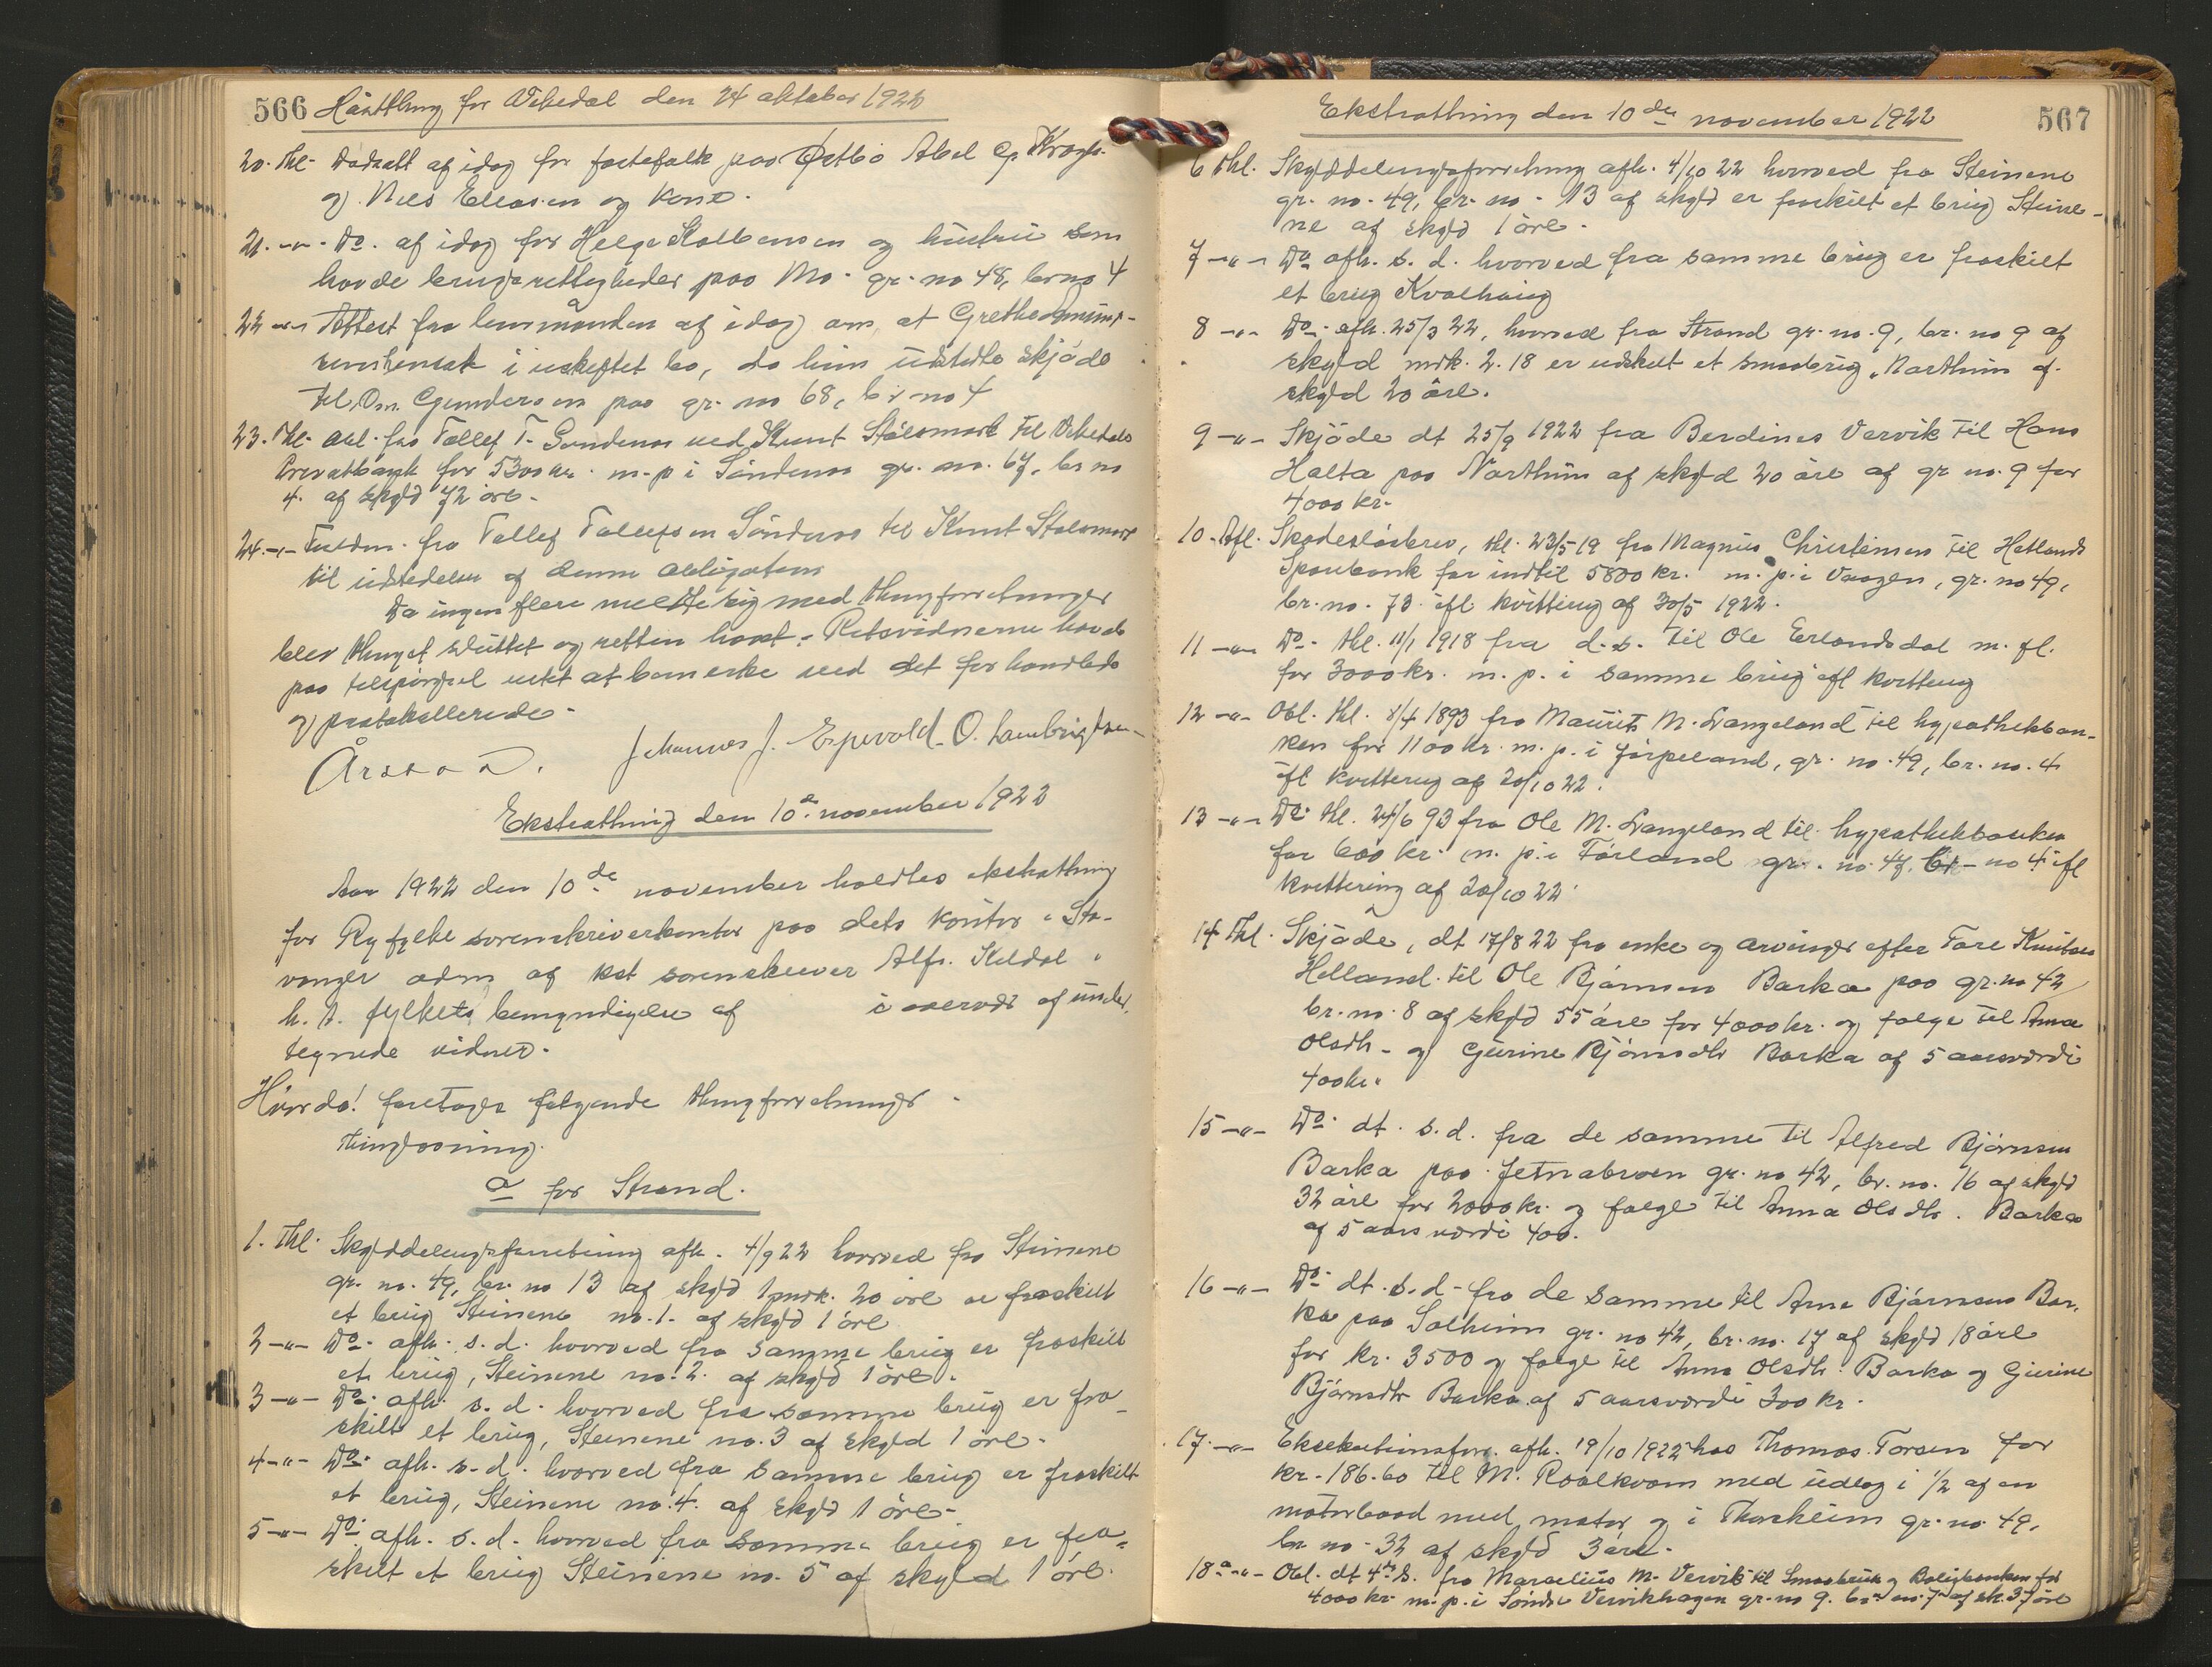 566 Høstthing for Vikedal den 24 oktober 1922
20. Thl. Dødsatt af idag for fastefolk paa Ørtbø Abel G.
og Nils Eliasen og kone.
21. -"- Do. af idag for Helge Kolbensen og hustru som
havde brugsrettigheder paa Mo gr. no 48, br no 4
22 -"- Attest fra lensmanden af idag om, at Grethe
i uskiftet bo, da hun udstedte skjøde
til Om. Gundersen paa gr. no 68, br. no 4
23. Thl. Obl. fra Tollef T. Søndenaa ved Knut Stølsmark til Vikedals
Privatbank for 5300 kr. m. p i Søndenaa gr. no. 67, br no
4. af skyld 72 øre.
24. -"- Fuldm. fra Tollef Tollefsen Søndenaa til Knut Stølsmark
til udstedelse af denne obligation
Da ingen flere meldte sig med thingforretninger
blev thinget sluttet og retten hævet. Retsvidnerne havde
paa tilspørgsel intet at bemerke ved det forhandlede
og protokollerede.
Årstad. Johannes J. Espevold. O. Lambrigtsen
Ekstrathing den 10de november 1922
Aar 1922 den 10de november holdtes ekstrathing
for Ryfylke sorenskriverkontor paa dets kontor i Sta-
vanger adm af kst sorenskriver Alfr. Kildal i
h. t. fylkets bemyndigelse af i overvær af under-
tegnede vidner.
Hvorda! foretages følgende thingforretninger
Thinglæsning.
a for Strand.
1. Thl. Skylddelingsforretning afh. 4/9 22 hvorved fra Steinene
gr. no. 49, br. no 13 af skyld 1 mrk. 20 øre er fraskilt
et brug Steinene no. 1. af skyld 1 øre
2 -"- Do. afh. s. d. hvorved fra samme brug er fraskilt
et brug, Steinene no. 2. af skyld 1 øre.
3 -"- Do. afh. s. d. hvorved fra samme brug er fra-
skilt et brug, Steinene no. 3 af skyld 1 øre.
4 -"- Do. afh. s. d. hvorved fra samme brug er fraskilt
et brug, Steinene no. 4. af skyld 1 øre.
5 -"- Do. afh. s. d. hvorved fra samme brug er fra-
skilt et brug Steinene no. 5 af skyld 1 øre.
Ekstrathing den 10de november 1922 567
6 Thl. Skylddelingsforretning afh. 4/10 22 hvorved fra Steinene
gr. no. 49, br. no. 13 af skyld er fraskilt et brug Steine-
ne af skyld 1 øre.
7 -"- Do afh. s. d. hvorved fra samme brug er fraskilt
et brug Kvalhaug
8 -"- Do. afh. 25/3 22, hvorved fra Strand gr. no. 9, br. no 9 af
skyld mrk. 2.18 er udskilt et smaabrug "Nortun af
skyld 20 øre.
9 -"- Skjøde dt 25/9 1922 fra Berdines Vervik til Hans
Halta paa Nortun af skyld 20 øre af gr no. 9 for
4000 kr.
10. Afl. Skadesløsbrev, thl. 23/5 19 fra Magnus Christensen til Hetlands
Sparebank for indtil 5800 kr. m. p. i Vaagen, gr. no 49,
br. no. 73. ifl kvittering af 30/5 1922.
11 -"- Do. thl. 11/1 1918 fra d. s. til Ole Erlandsdal m. fl.
for 3000 kr. m. p. i samme brug ifl kvittering
12 -"- Obl. thl. 8/4 1893 fra Maurits M. Langeland til hypothekban-
ken for 1100 kr. m. p. i Jørpeland, gr. no. 49, br. no. 4
ifl kvittering af 20/10 22.
13 -"- Do. thl. 24/6 93 fra Ole M. Langeland til hypothekbanken
for 600 kr. m. p. i Førland gr. no. 47, br. no 4 ifl
kvittering af 20/10 22.
14 Thl. Skjøde, dt 17/8 22 fra enke og arvinger efter Tore Knutsen
Helland til Ole Bjørnsen Barka paa gr. no 42
br. no. 8 af skyld 55 øre for 4000 kr. og følge til Anna
Olsdtr. og Gurine Bjørnsdtr Barka af 5 aarsværdi
400 kr.
15 -"- Do. dt. s. d. fra de samme til Alfred Bjørnsen
Barka paa Jetnabraaten gr. no 42, br. no. 16 af skyld
32 øre for 2000 kr. og følge til Anna Olsdtr. Barka
af 5 aars værdi 400.
16 -"- Do. dt. s. d. fra de samme til Arne Bjørnsen Bar-
ka paa Solheim gr. no 42, br. no. 17 af skyld 18 øre
for kr. 3500 og følge til Anna Olsdtr. Barka og Gurine
Bjørnsdtr Barka af 5 aarsværdi 300 kr.
17. -"- Eksekutionsforr. afh. 19/10 1922 hos Thomas Torsen for
kr. 186.60 til M. Roalkvam med udlæg i 1/2 af en
motorbaad med motor og i Thorsheim gr. no 49,
br no. 32 af skyld 3 øre.
18a -"- Obl. dt 4 ds. fra Marselius M. Vervik til Smaabruk og Boligbanken for
4000 kr m. p. i Søndre Vervikhagen gr. no 9. br. no. 7 af sk. 37 øre